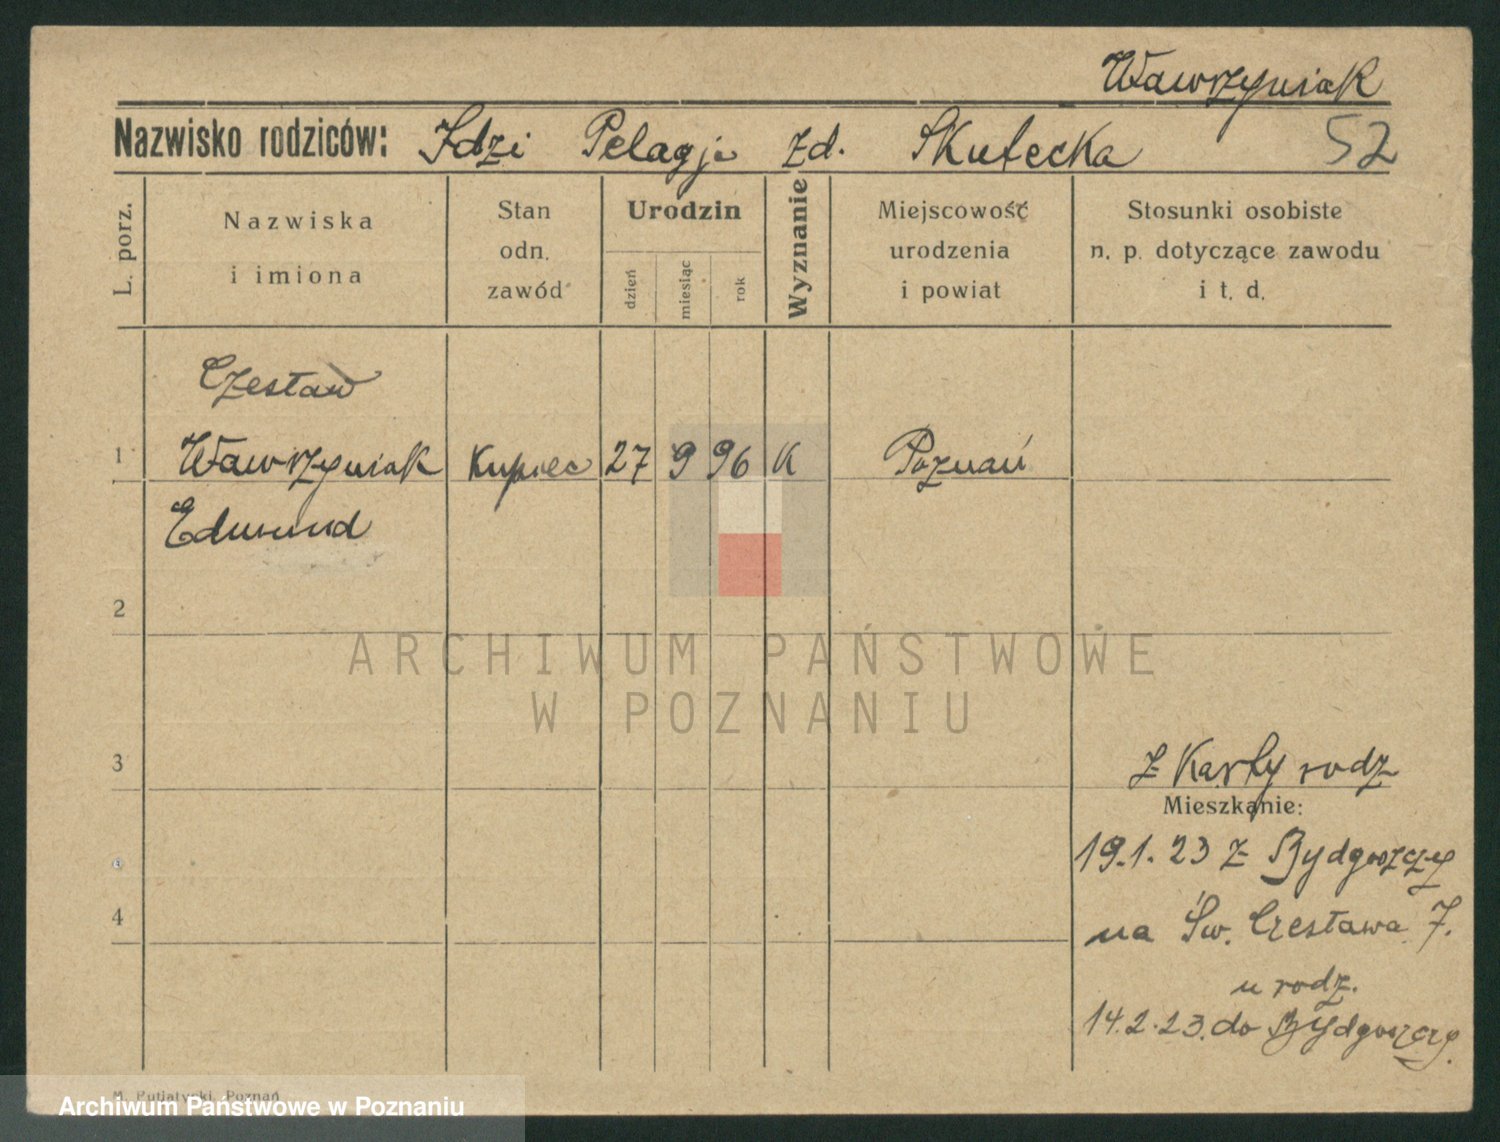 Wawrzyniak
Nazwisko rodziców: Idzi Pelagja zd. Skutecka 52
L. porz.
Nazwiska
i imiona
Stan
odn.
zawód
Urodzin
dzień
miesiąc
rok
Wyznanie
Miejscowość
urodzenia
i powiat
Stosunki osobiste
n. p. dotyczące zawodu
i t. d.
Czesław
1 Wawrzyniak Kupiec 27 9 96 K Poznań
Edmund
2
ARCHIWUM PAŃSTWOWE
W POZNANIU
3
z Karty rodz
Mieszkanie:
19.1.23 z Bydgoszczy
4
na Św. Czesława 7.
u rodz.
14.2.23. do Bydgoszczy.
M. Putiatycki, Poznań
Archiwum Państwowe w Poznaniu